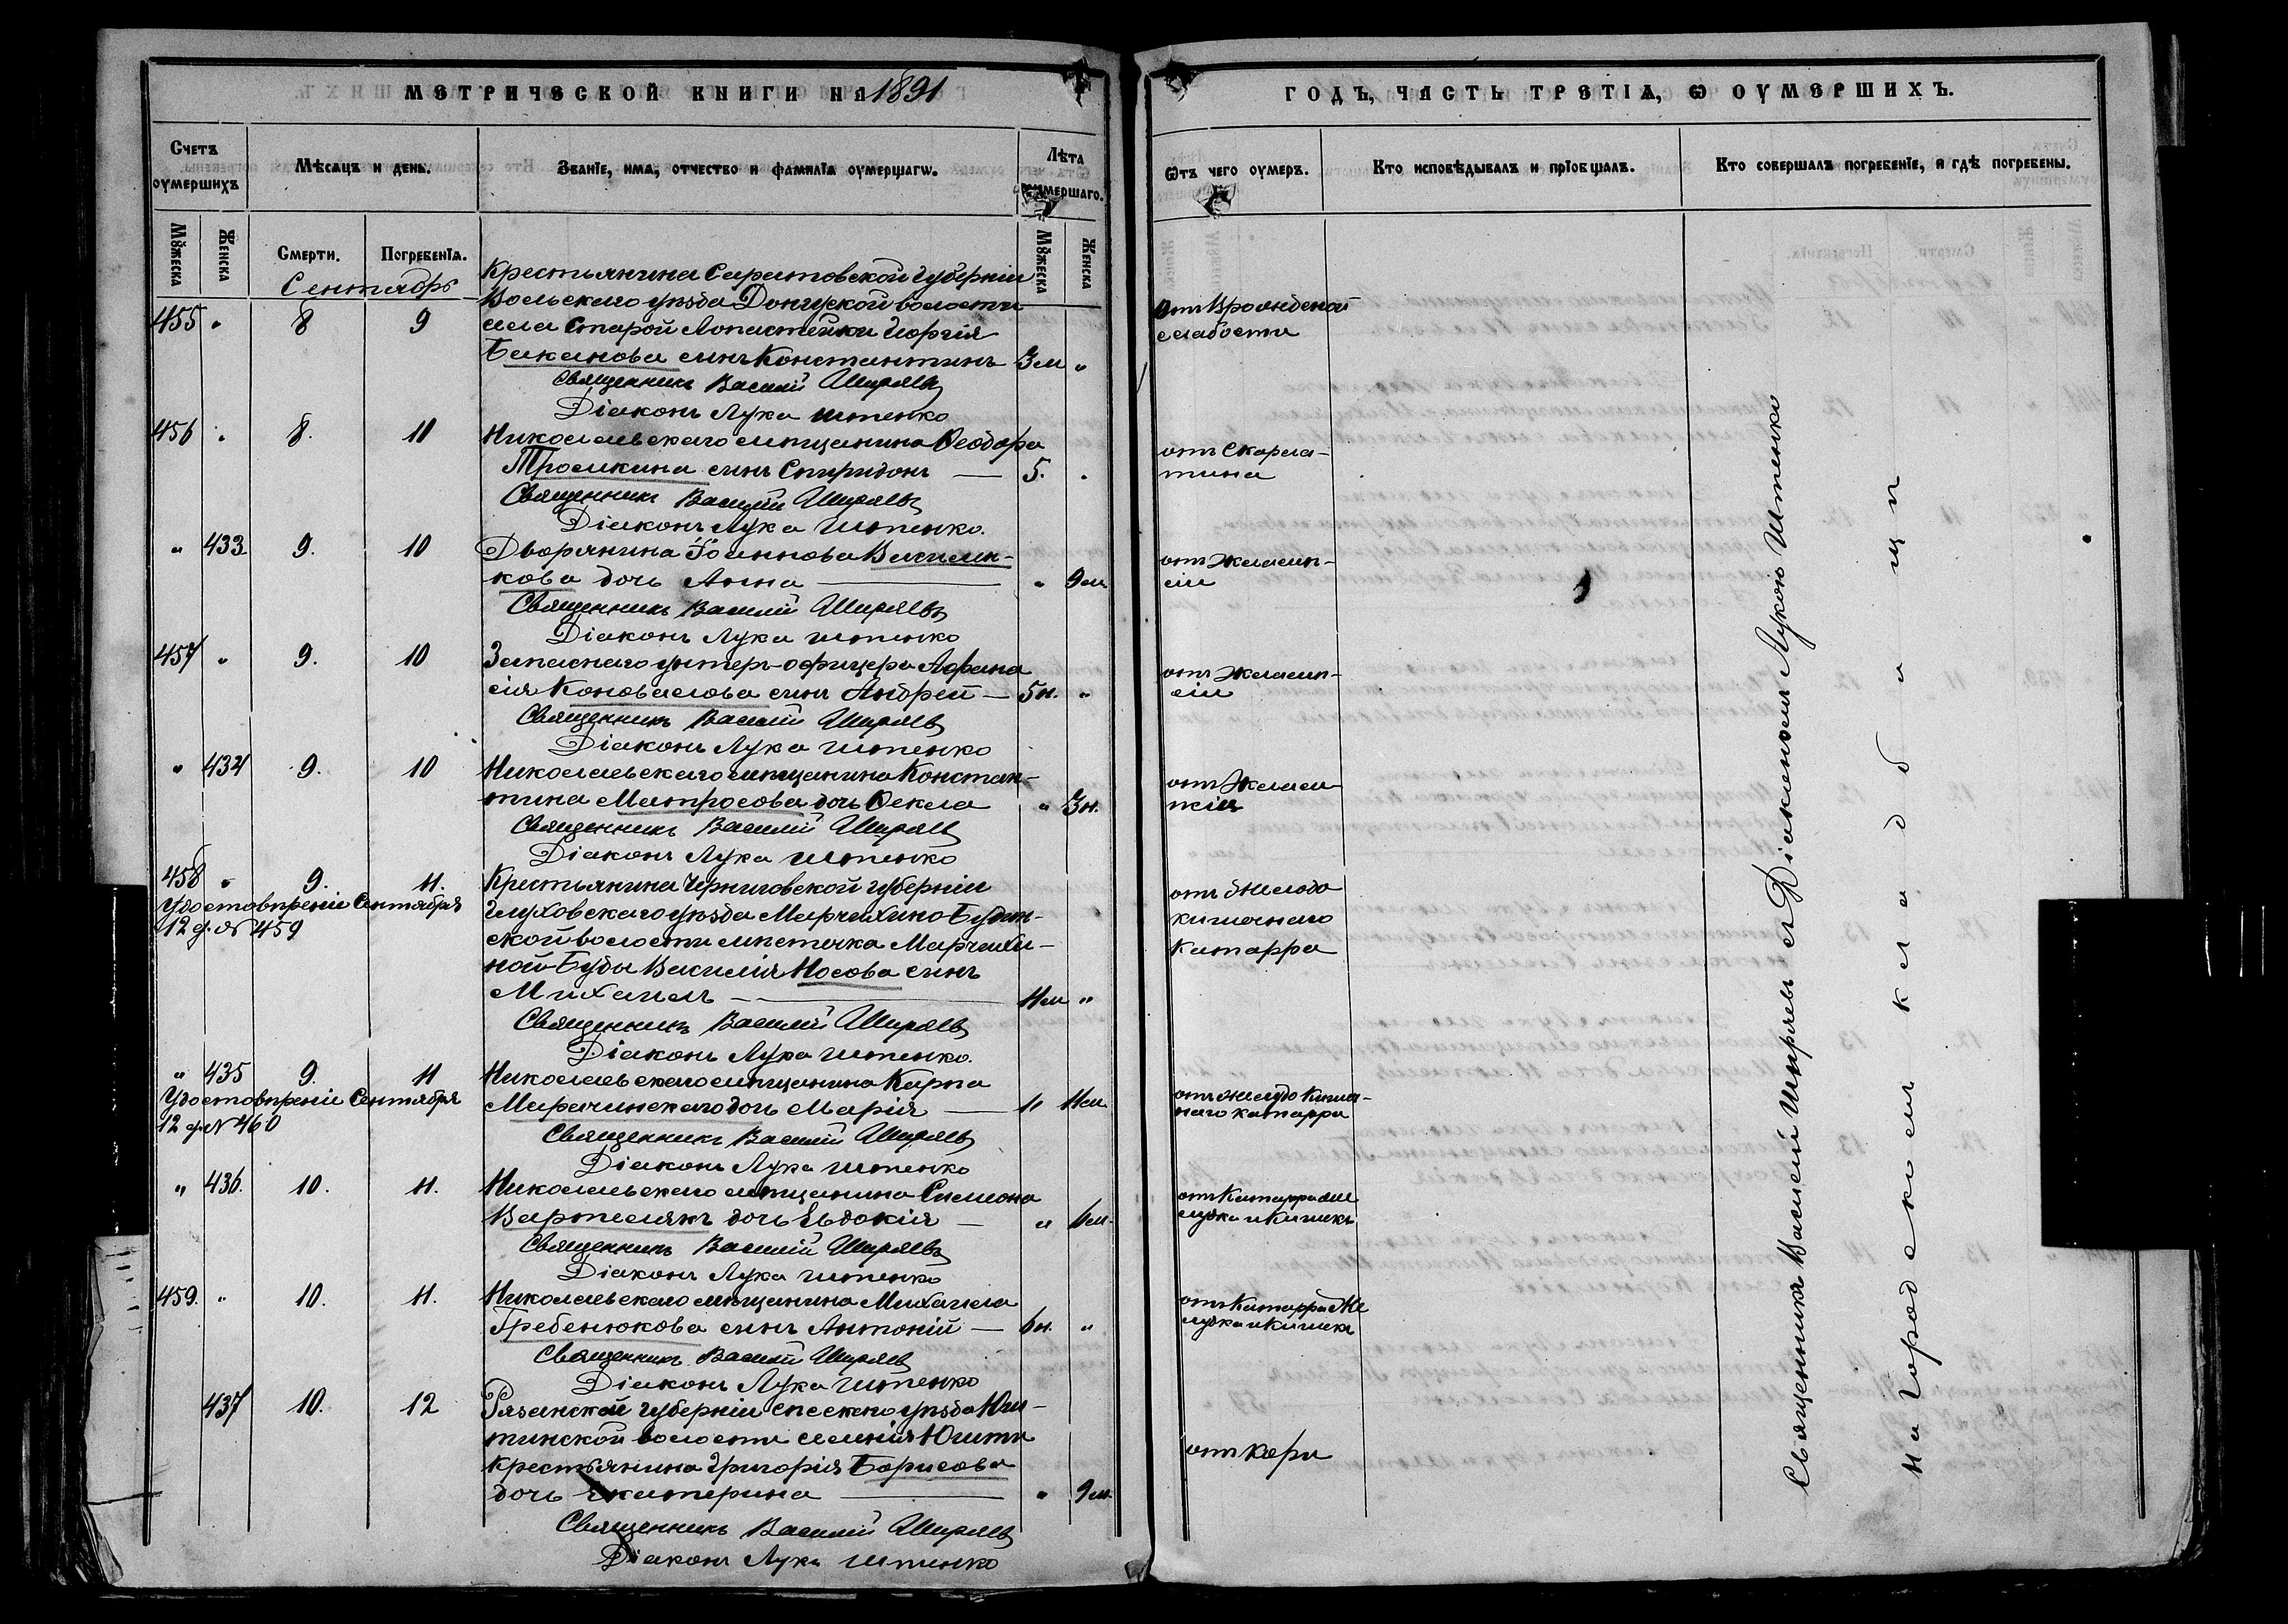 МЕТРИЧЕСКОЙ КНИГИ НА 1891
Счетъ оумершихъ
Мѣсяцъ и день.
Званіе, имя, отчество и фамилія оумершагѡ.
Лѣта оумершаго.
Мꙋжеска
Женска
Смерти.
Погребенія.
Мꙋжеска
Женска
Сентябрь
Крестьянина Саратовской губерніи
Вольскаго уѣзда Донгузской волости
455 " 8 9 села Старой Лопастейки Георгія
Баканова сынъ Константинъ 3м "
Священникъ Василій Ширяевъ
Діаконъ Лука Штенко
456 " 8. 10 Николаевскаго мѣщанина Ѳеодора
Тросикина сынъ Спиридонъ — 5. "
Священникъ Василій Ширяевъ
Діаконъ Лука Штенко.
" 433 9. 10 Дворянина Іоаннова Василь-
кова дочь Анна — " 9м
Священникъ Василій Ширяевъ
Діаконъ Лука Штенко
457 " 9. 10 Запаснаго унтеръ-офицера Афана
сія Коновалова сынъ Андрей — 5н. "
Священникъ Василій Ширяевъ
Діаконъ Лука Штенко
" 434 9. 10 Николаевскаго мѣщанина Констан-
тина Матросова дочь Ѳекла " 3н.
Священникъ Василій Ширяевъ
Діаконъ Лука Штенко
458 " 9. 11. Крестьянина Черниговской губерніи
Удостовѣреніе Сентября Глуховскаго уѣзда Марчихино Будян-
12 д. № 459 ской волости мѣстечка Марчихи-
ной-Буды Василія Носова сынъ
Михаилъ — 11м "
Священникъ Василій Ширяевъ
Діаконъ Лука Штенко.
" 435 9. 11 Николаевскаго мѣщанина Карпа
Удостовѣреніе Сентября Марачинскаго дочь Марія — " 11м
12 д. № 460
Священникъ Василій Ширяевъ
Діаконъ Лука Штенко
" 436. 10. 11. Николаевскаго мѣщанина Симеона
Вартеляки дочь Евдокія — " 6м.
Священникъ Василій Ширяевъ
Діаконъ Лука Штенко
459. " 10. 11. Николаевскаго мѣщанина Михаила
Гребенюкова сынъ Антоній — 6н. "
Священникъ Василій Ширяевъ
Діаконъ Лука Штенко
437 10. 12 Рязанской губерніи Спасскаго уѣзда
волости селенія
крестьянина Григорія Борисова
дочь Екатерина — " 9м.
Священникъ Василій Ширяевъ
Діаконъ Лука Штенко
ГОДЪ, ЧАСТЬ ТРЕТІѦ, Ѡ ОУМЕРШИХЪ.
Ѿтъ чего оумеръ.
Кто исповѣдывалъ и пріобщалъ.
Кто совершалъ погребеніе, и гдѣ погребены.
отъ Врожденной
слабости
отъ Скарла-
тина
отъ Эклямп-
сіи
отъ Эклямп-
сіи
отъ Эклям-
псіи
отъ Желудо
кишечнаго
катарра
отъ желудо Кишеч-
наго катарра
отъ Катарра Же
лудка и Кишекъ
отъ Катарра Же
лудка и Кишекъ
отъ кори
Священникъ Василій Ширяевъ съ Діакономъ Лукою Штенко
на городскомъ кладбищѣ